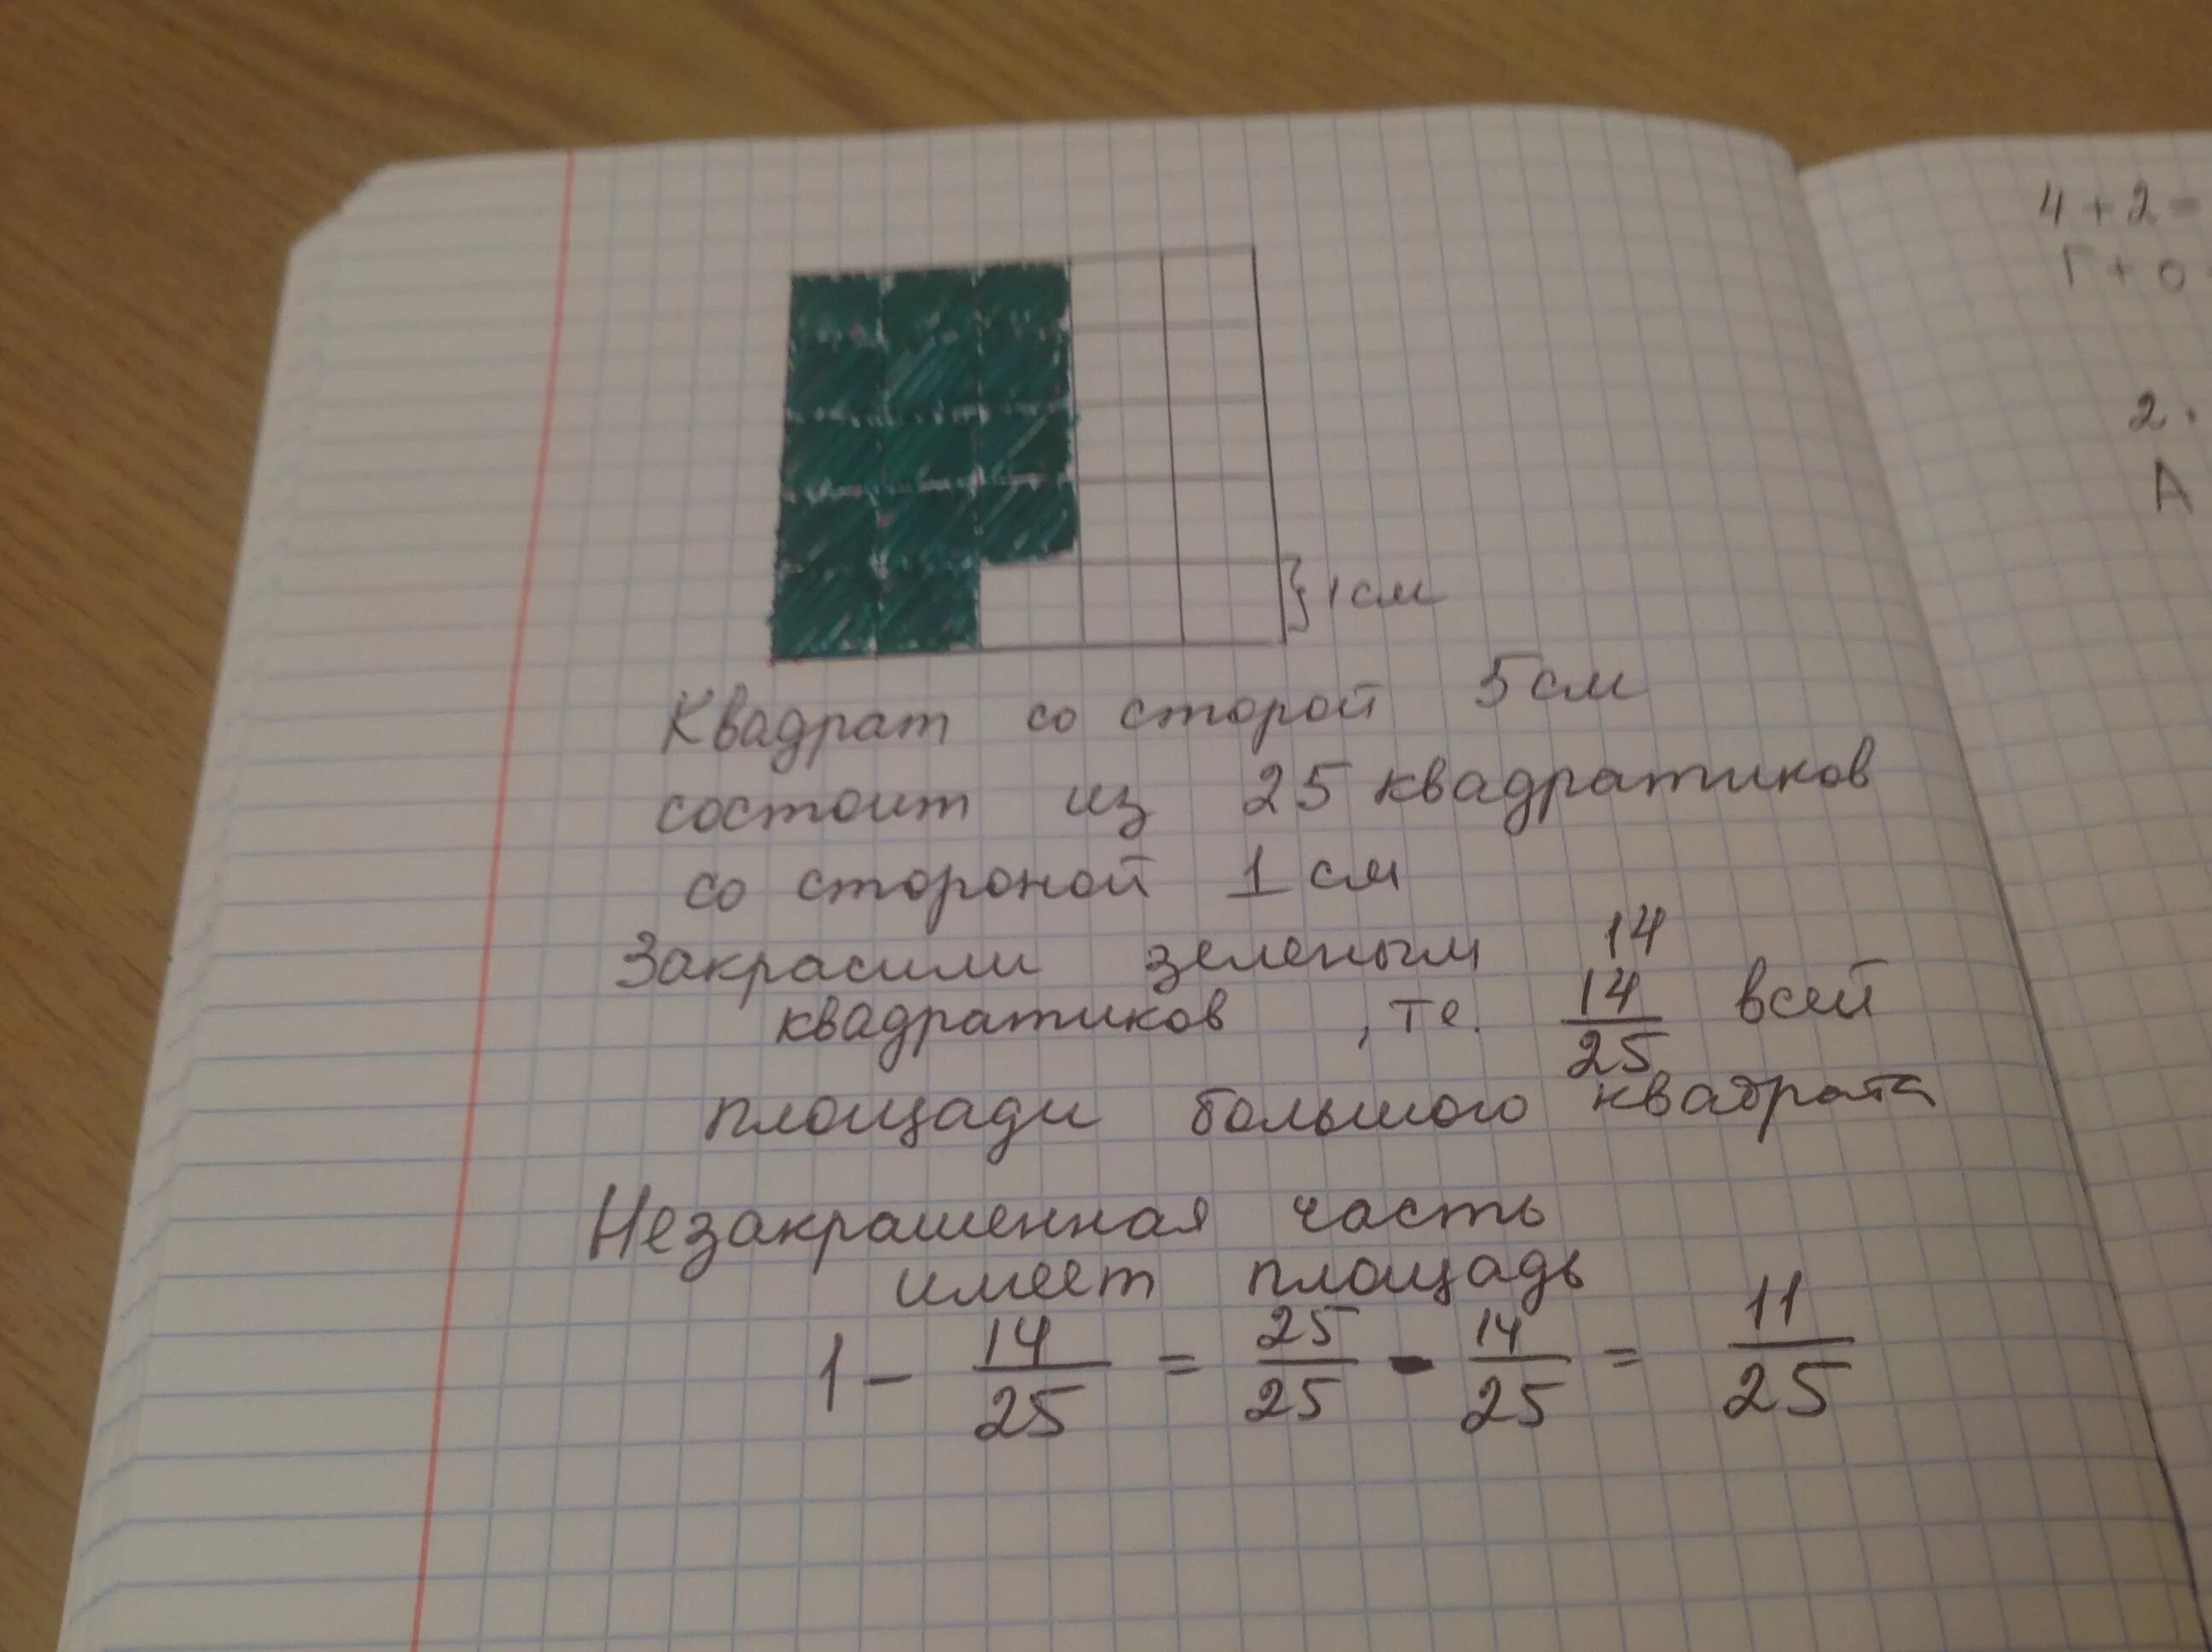 1 см
Квадрат со сторой 5 см
состоит из 25 квадратиков
со стороной 1 см
Закрасили зеленым 14
квадратиков , те. 14/25 всей
площади большого квадрата
Незакрашенная часть
имеет площадь
1 - 14/25 = 25/25 - 14/25 = 11/25
4 + 2 =
Г + о
2 .
А